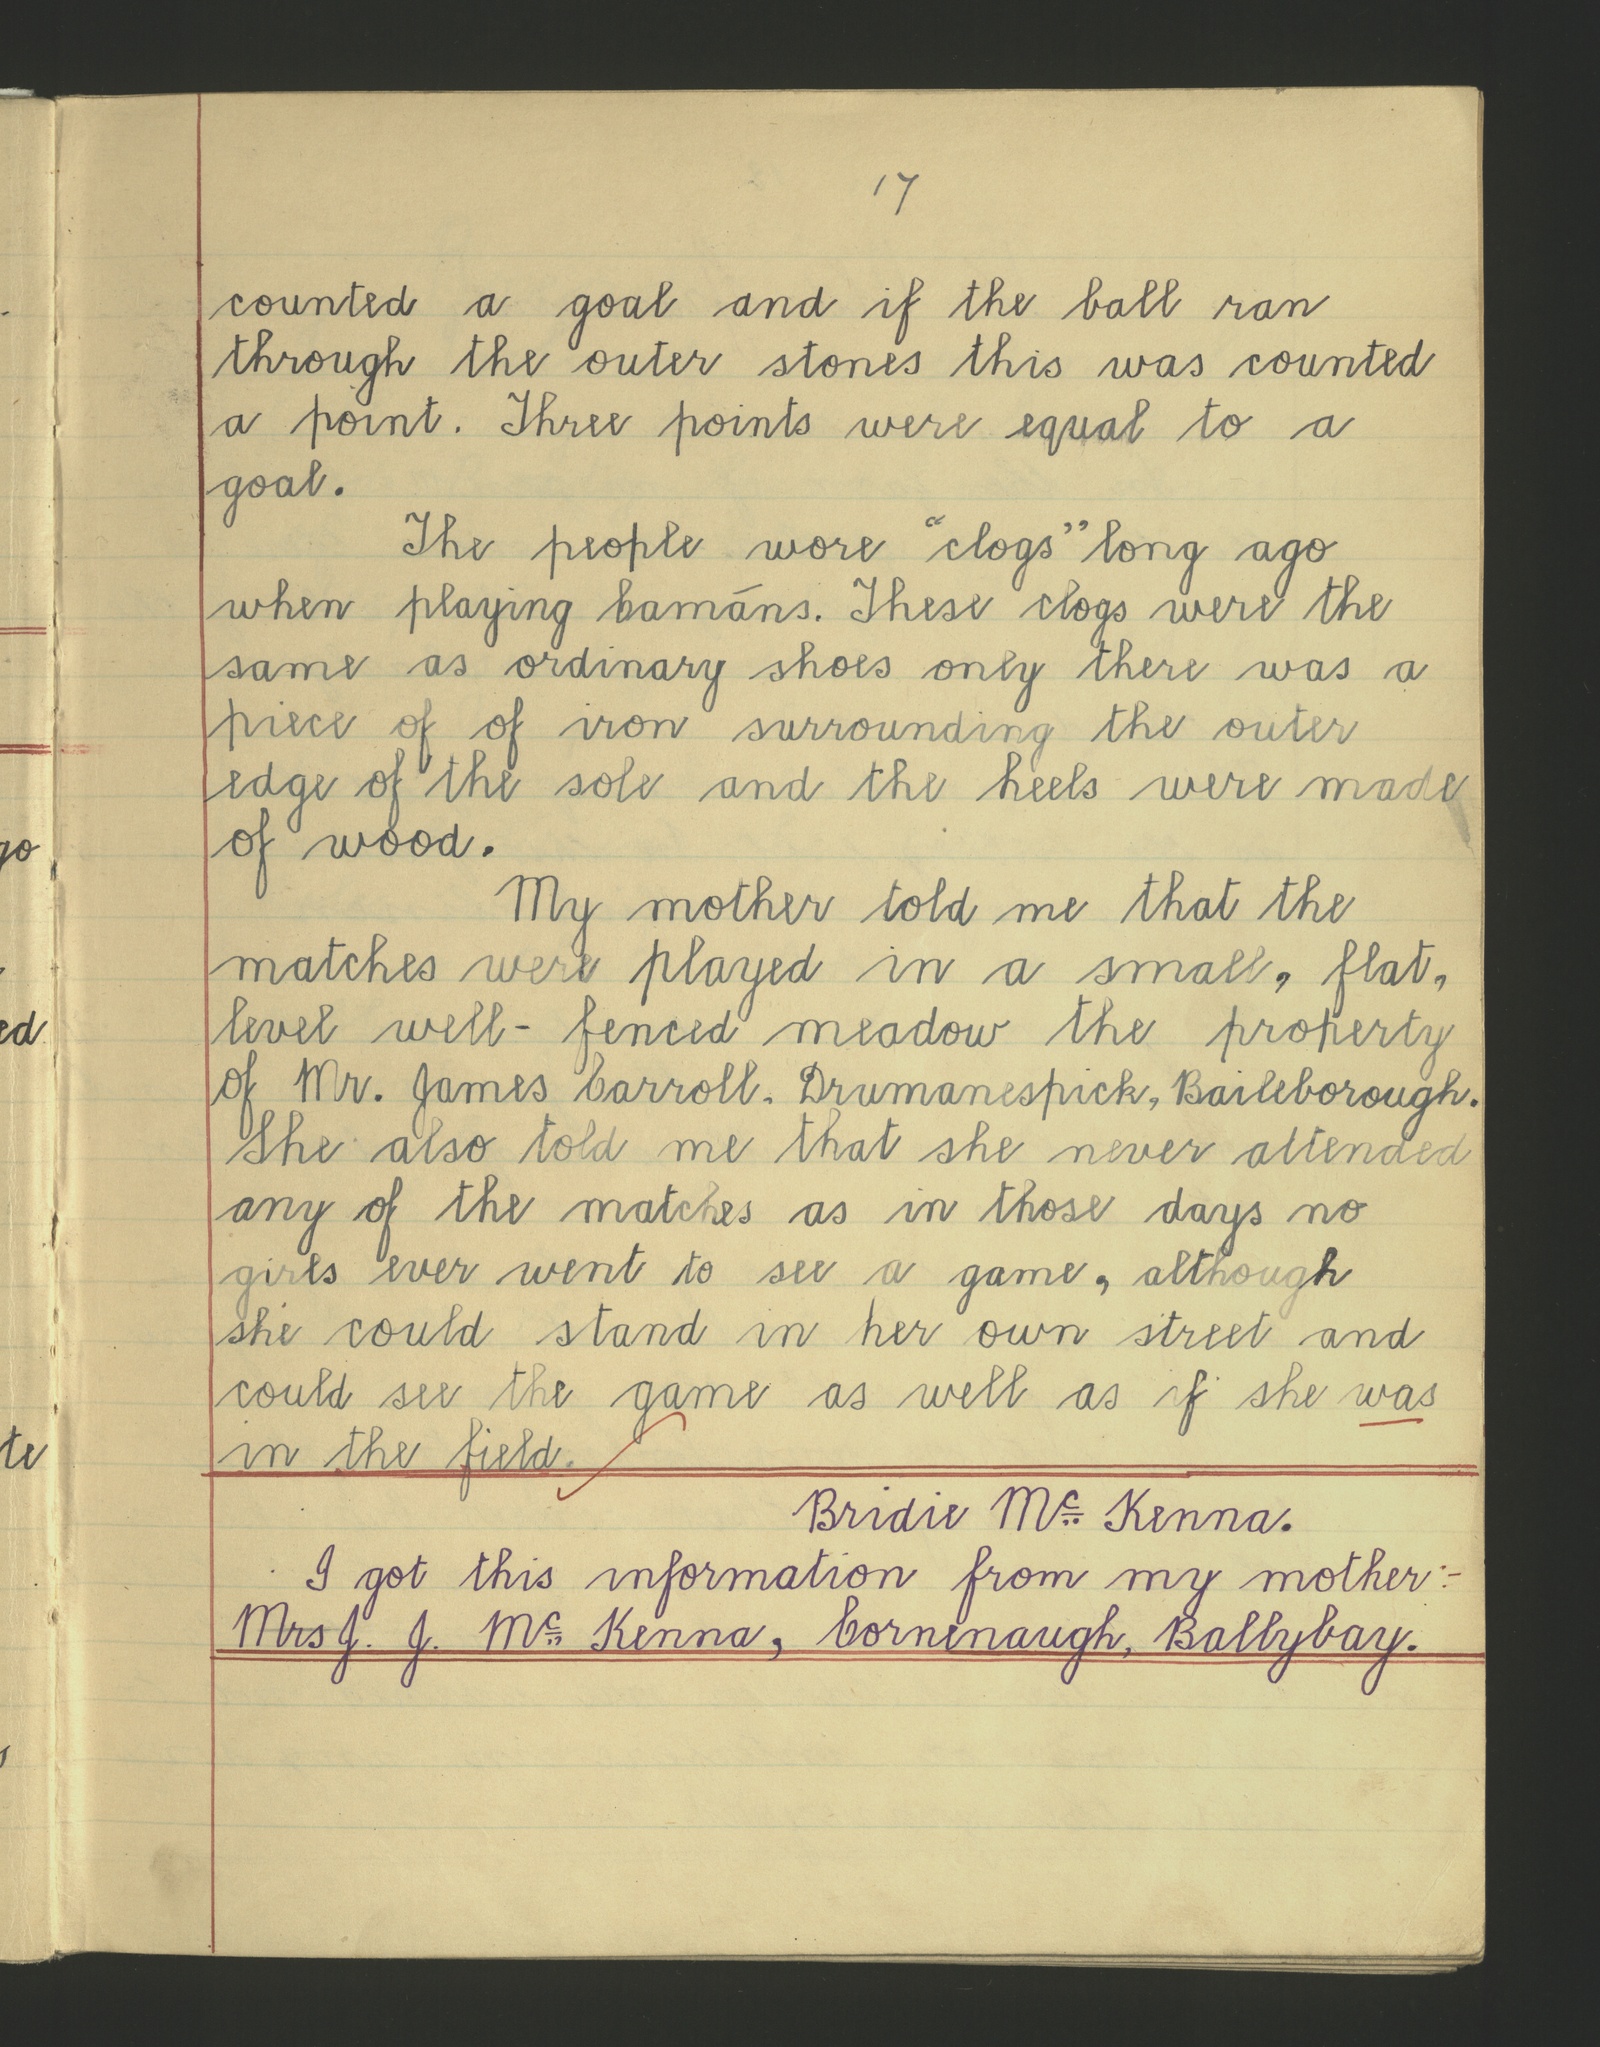 17
counted a goal and if the ball ran
through the outer stones this was counted
a point. Three points were equal to a
goal.
The people wore "clogs" long ago
when playing camáns. These clogs were the
same as ordinary shoes only there was a
piece of of iron surrounding the outer
edge of the sole and the heels were made
of wood.
My mother told me that the
matches were played in a small, flat,
level well-fenced meadow the property
of Mr. James Carroll. Drumanespick, Baileborough.
She also told me that she never attended
any of the matches as in those days no
girls ever went to see a game, although
she could stand in her own street and
could see the game as well as if she was
in the field.
Bridie Mc Kenna.
I got this information from my mother:-
Mrs J. J. Mc Kenna, Cornenaugh, Ballybay.
go
ed
te
s